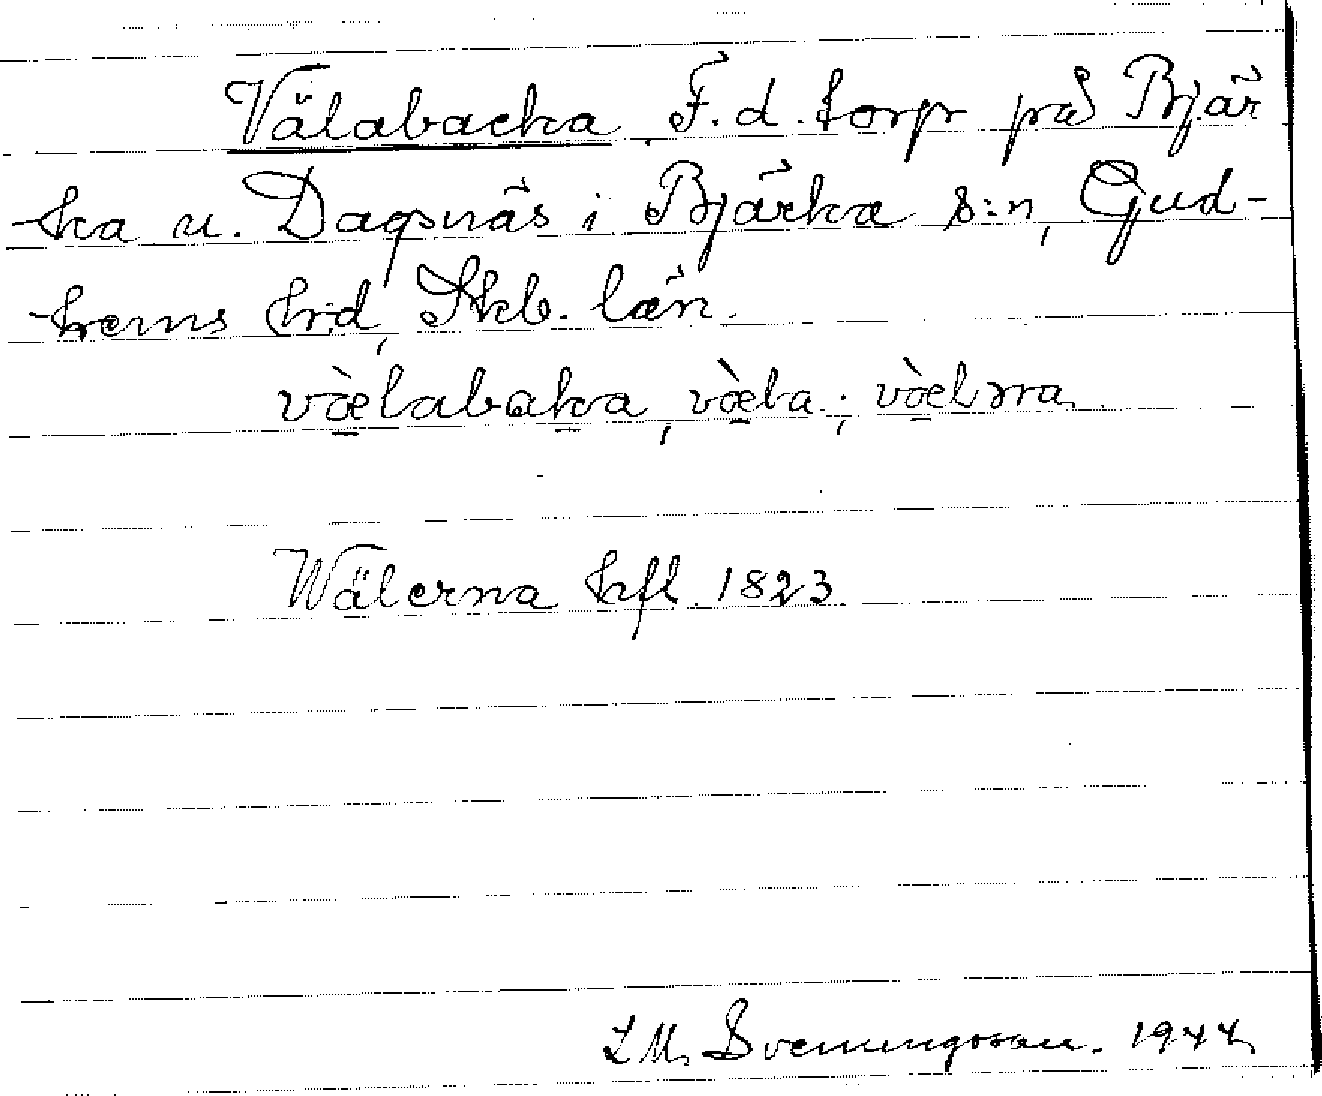 Välabacka F.d. torp på Bjär
ka u. Dagsnäs i Bjärka s:n, Gud-
hems hrd, Skb. län.
vòelabaka, vòela; vòelṇa
Wälerna hfl. 1823
L M. Svenungsson. 1944